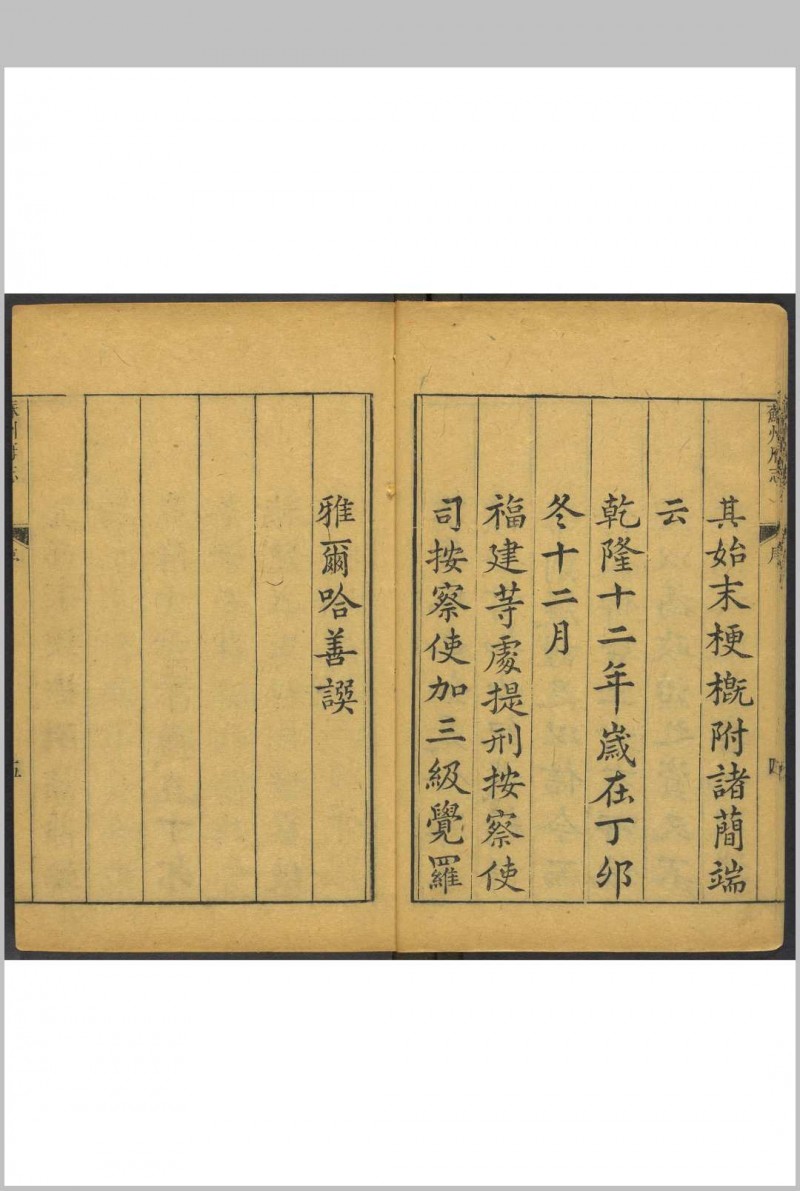 蘇州府志
序
四
其始末梗槪附諸簡端
云
乾隆十二年歲在丁卯
冬十二月
福建等處提刑按察使
司按察使加三級覺羅
雅爾哈善譔
五